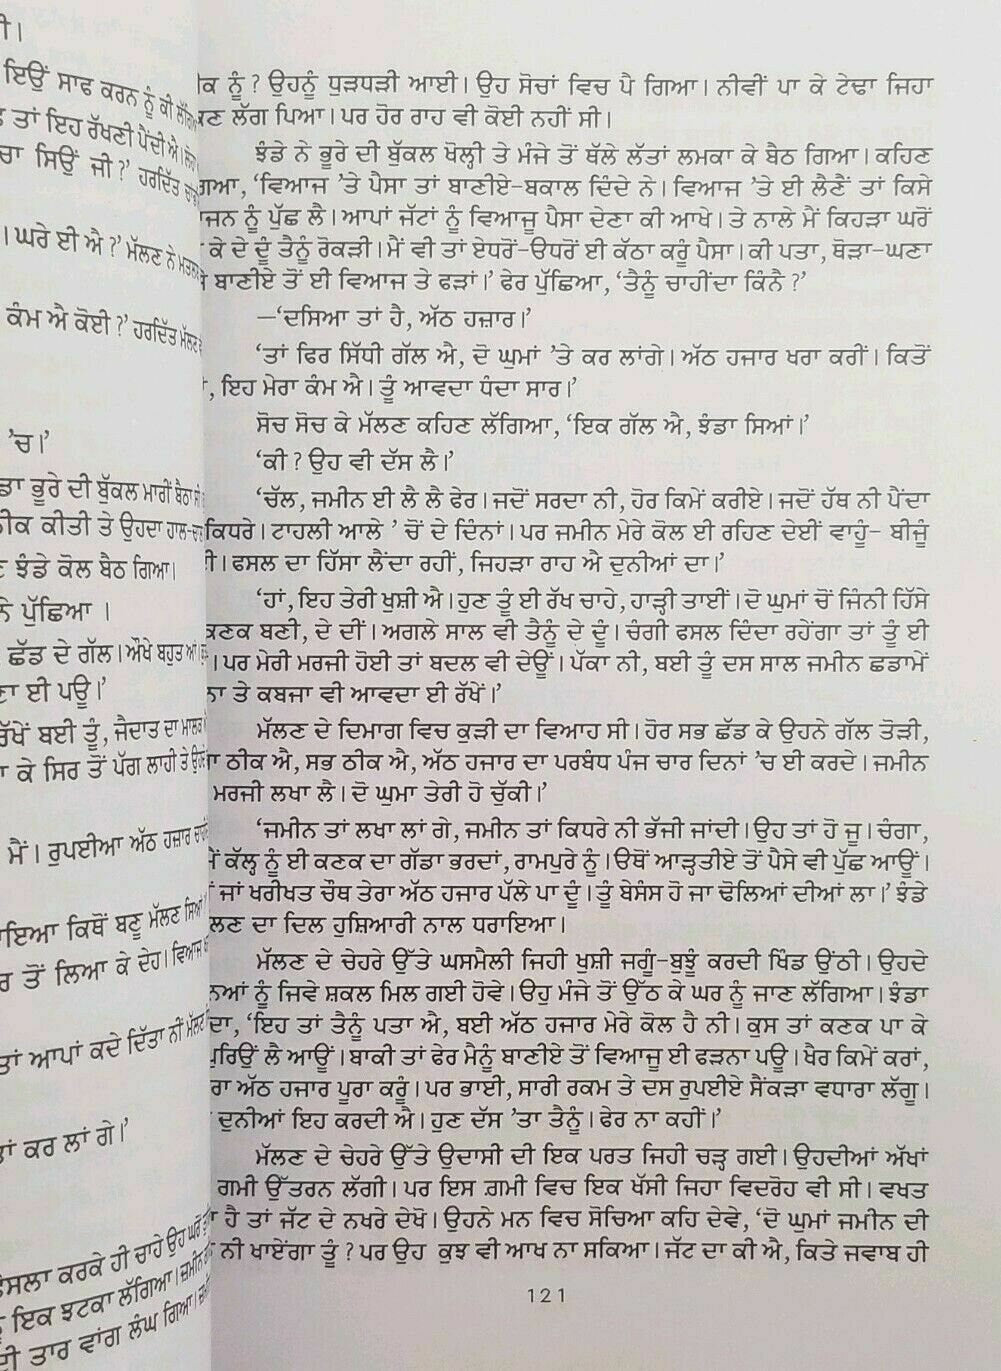 ੀ।
ਇਉਂ ਸਾਫ ਕਰਨ ਨੂੰ ਕੀ
ਤਾਂ ਇਹ ਰੱਖਣੀ ਪੈਂਦੀ ਐ।
ਚਾ ਸਿਉਂ ਜੀ?’ ਹਰਦਿੱਤ
। ਘਰੇ ਈ ਐ?’ ਮੱਲਣ ਨੇ
ਕੰਮ ਐ ਕੋਈ?’ ਹਰਦਿੱਤ ਮੱਲਣ
’ਚ।’
ਡਾ ਭੂਰੇ ਦੀ ਬੁੱਕਲ ਮਾਰੀਂ ਬੈਠਾ
ਠੀਕ ਕੀਤੀ ਤੇ ਉਹਦਾ ਹਾਲ-ਚਾਲ
ਝੰਡੇ ਕੋਲ ਬੈਠ ਗਿਆ।
ਨੇ ਪੁੱਛਿਆ ।
ਛੱਡ ਦੇ ਗੱਲ। ਔਖੇ ਬਹੁਤ ਆਂ।
ਣਾ ਈ ਪਊ।’
ਰੱਖੇਂ ਬਈ ਤੂੰ, ਜੈਦਾਤ ਦਾ ਮਾਲਕ
ਕੇ ਸਿਰ ਤੋਂ ਪੱਗ ਲਾਹੀ ਤੇ
ਮੈਂ। ਰੁਪਈਆ ਅੱਠ ਹਜ਼ਾਰ
ਾਇਆ ਕਿਥੋਂ ਬਣੂ ਮੱਲਣ ਸਿਆਂ
ਰ ਤੋਂ ਲਿਆ ਕੇ ਦੇਹ। ਵਿਆਜ
ਤਾਂ ਆਪਾਂ ਕਦੇ ਦਿੱਤਾ ਨੀਂ ਮੱਲਣ
ਤਾਂ ਕਰ ਲਾਂ ਗੇ।’
ਫੈਸਲਾ ਕਰਕੇ ਹੀ ਚਾਹੇ ਉਹ ਘਰੋਂ
ਨੂੰ ਇਕ ਝਟਕਾ ਲੱਗਿਆ। ਜ਼ਮੀਨ
ਦੀ ਤਾਰ ਵਾਂਗ ਲੰਘ ਗਿਆ।
ਕ ਨੂੰ? ਉਹਨੂੰ ਧੁੜਧੜੀ ਆਈ। ਉਹ ਸੋਚਾਂ ਵਿਚ ਪੈ ਗਿਆ। ਨੀਵੀਂ ਪਾ ਕੇ ਟੇਢਾ ਜਿਹਾ
ਕਣ ਲੱਗ ਪਿਆ। ਪਰ ਹੋਰ ਰਾਹ ਵੀ ਕੋਈ ਨਹੀਂ ਸੀ।
ਝੰਡੇ ਨੇ ਭੂਰੇ ਦੀ ਬੁੱਕਲ ਖੋਲ੍ਹੀ ਤੇ ਮੰਜੇ ਤੋਂ ਥੱਲੇ ਲੱਤਾਂ ਲਮਕਾ ਕੇ ਬੈਠ ਗਿਆ। ਕਹਿਣ
ਗਿਆ, ‘ਵਿਆਜ ’ਤੇ ਪੈਸਾ ਤਾਂ ਬਾਣੀਏ-ਬਕਾਲ ਦਿੰਦੇ ਨੇ। ਵਿਆਜ ’ਤੇ ਈ ਲੈਣੈਂ ਤਾਂ ਕਿਸੇ
ਾਜਨ ਨੂੰ ਪੁੱਛ ਲੈ। ਆਪਾਂ ਜੱਟਾਂ ਨੂੰ ਵਿਆਜੂ ਪੈਸਾ ਦੇਣਾ ਕੀ ਆਖੇ। ਤੇ ਨਾਲੇ ਮੈਂ ਕਿਹੜਾ ਘਰੋਂ
ਕੇ ਦੇ ਦੂੰ ਤੈਨੂੰ ਰੋਕੜੀ। ਮੈਂ ਵੀ ਤਾਂ ਏਧਰੋਂ-ਓਧਰੋਂ ਈ ਕੱਠਾ ਕਰੂੰ ਪੈਸਾ। ਕੀ ਪਤਾ, ਥੋੜਾ-ਘਣਾ
ਬਾਣੀਏ ਤੋਂ ਈ ਵਿਆਜ ਤੇ ਫੜਾਂ।’ ਫੇਰ ਪੁੱਛਿਆ, ‘ਤੈਨੂੰ ਚਾਹੀਂਦਾ ਕਿੰਨੈ?’
—‘ਦਸਿਆ ਤਾਂ ਹੈ, ਅੱਠ ਹਜ਼ਾਰ।’
‘ਤਾਂ ਫਿਰ ਸਿੱਧੀ ਗੱਲ ਐ, ਦੋ ਘੁਮਾਂ ’ਤੇ ਕਰ ਲਾਂਗੇ। ਅੱਠ ਹਜਾਰ ਖਰਾ ਕਰੀਂ। ਕਿਤੋਂ
, ਇਹ ਮੇਰਾ ਕੰਮ ਐ। ਤੂੰ ਆਵਦਾ ਧੰਦਾ ਸਾਰ।’
ਸੋਚ ਸੋਚ ਕੇ ਮੱਲਣ ਕਹਿਣ ਲੱਗਿਆ, ‘ਇਕ ਗੱਲ ਐ, ਝੰਡਾ ਸਿਆਂ।’
‘ਕੀ? ਉਹ ਵੀ ਦੱਸ ਲੈ।’
‘ਚੱਲ, ਜਮੀਨ ਈ ਲੈ ਲੈ ਫੇਰ। ਜਦੋਂ ਸਰਦਾ ਨੀ, ਹੋਰ ਕਿਮੇਂ ਕਰੀਏ। ਜਦੋਂ ਹੱਥ ਨੀ ਪੈਂਦਾ
ਕਿਧਰੇ। ਟਾਹਲੀ ਆਲੇ ’ ਚੋਂ ਦੇ ਦਿੰਨਾਂ। ਪਰ ਜਮੀਨ ਮੇਰੇ ਕੋਲ ਈ ਰਹਿਣ ਦੇਈਂ ਵਾਹੂੰ- ਬੀਜੂੰ
। ਫਸਲ ਦਾ ਹਿੱਸਾ ਲੈਂਦਾ ਰਹੀਂ, ਜਿਹੜਾ ਰਾਹ ਐ ਦੁਨੀਆਂ ਦਾ।’
‘ਹਾਂ, ਇਹ ਤੇਰੀ ਖੁਸ਼ੀ ਐ। ਹੁਣ ਤੂੰ ਈ ਰੱਖ ਚਾਹੇ, ਹਾੜ੍ਹੀ ਤਾਈਂ। ਦੋ ਘੁਮਾਂ ਚੋਂ ਜਿੰਨੀ ਹਿੱਸੇ
ਕਣਕ ਬਣੀ, ਦੇ ਦੀਂ। ਅਗਲੇ ਸਾਲ ਵੀ ਤੈਨੂੰ ਦੇ ਦੂੰ। ਚੰਗੀ ਫਸਲ ਦਿੰਦਾ ਰਹੇਂਗਾ ਤਾਂ ਤੂੰ ਈ
। ਪਰ ਮੇਰੀ ਮਰਜੀ ਹੋਈ ਤਾਂ ਬਦਲ ਵੀ ਦੇਊਂ। ਪੱਕਾ ਨੀ, ਬਈ ਤੂੰ ਦਸ ਸਾਲ ਜਮੀਨ ਛਡਾਮੇਂ
ਨਾ ਤੇ ਕਬਜਾ ਵੀ ਆਵਦਾ ਈ ਰੱਖੇਂ।’
ਮੱਲਣ ਦੇ ਦਿਮਾਗ ਵਿਚ ਕੁੜੀ ਦਾ ਵਿਆਹ ਸੀ। ਹੋਰ ਸਭ ਛੱਡ ਕੇ ਉਹਨੇ ਗੱਲ ਤੋੜੀ,
ਾ ਠੀਕ ਐ, ਸਭ ਠੀਕ ਐ, ਅੱਠ ਹਜਾਰ ਦਾ ਪਰਬੰਧ ਪੰਜ ਚਾਰ ਦਿਨਾਂ ’ਚ ਈ ਕਰਦੇ। ਜਮੀਨ
ਮਰਜੀ ਲਖਾ ਲੈ। ਦੋ ਘੁਮਾ ਤੇਰੀ ਹੋ ਚੁੱਕੀ।’
‘ਜਮੀਨ ਤਾਂ ਲਖਾ ਲਾਂ ਗੇ, ਜਮੀਨ ਤਾਂ ਕਿਧਰੇ ਨੀ ਭੱਜੀ ਜਾਂਦੀ। ਉਹ ਤਾਂ ਹੋ ਜੂ। ਚੰਗਾ,
ਮੈਂ ਕੱਲ੍ਹ ਨੂੰ ਈ ਕਣਕ ਦਾ ਗੱਡਾ ਭਰਦਾਂ, ਰਾਮਪੁਰੇ ਨੂੰ। ਓਥੋਂ ਆੜ੍ਹਤੀਏ ਤੋਂ ਪੈਸੇ ਵੀ ਪੁੱਛ ਆਊਂ।
ਂ ਜਾਂ ਖਰੀਖਤ ਚੌਥ ਤੇਰਾ ਅੱਠ ਹਜਾਰ ਪੱਲੇ ਪਾ ਦੂੰ। ਤੂੰ ਬੇਸੰਸ ਹੋ ਜਾ ਢੋਲਿਆਂ ਦੀਆਂ ਲਾ।’ ਝੰਡੇ
ਲਣ ਦਾ ਦਿਲ ਹੁਸ਼ਿਆਰੀ ਨਾਲ ਧਰਾਇਆ।
ਮੱਲਣ ਦੇ ਚੇਹਰੇ ਉੱਤੇ ਘਸਮੈਲੀ ਜਿਹੀ ਖੁਸ਼ੀ ਜਗੂੰ-ਬੁਝੂੰ ਕਰਦੀ ਖਿੰਡ ਉੱਠੀ। ਉਹਦੇ
ਨਿਆਂ ਨੂੰ ਜਿਵੇ ਸ਼ਕਲ ਮਿਲ ਗਈ ਹੋਵੇ। ਓਹੁ ਮੰਜੇ ਤੋਂ ਉੱਠ ਕੇ ਘਰ ਨੂੰ ਜਾਣ ਲੱਗਿਆ। ਝੰਡਾ
ਦਾ, ‘ਇਹ ਤਾਂ ਤੈਨੂੰ ਪਤਾ ਐ, ਬਈ ਅੱਠ ਹਜ਼ਾਰ ਮੇਰੇ ਕੋਲ ਹੈ ਨੀ। ਕੁਸ ਤਾਂ ਕਣਕ ਪਾ ਕੇ
ਪੁਰਿਉਂ ਲੈ ਆਊਂ। ਬਾਕੀ ਤਾਂ ਫੇਰ ਮੈਨੂੰ ਬਾਣੀਏ ਤੋਂ ਵਿਆਜੂ ਈ ਫੜਨਾ ਪਊ। ਖੈਰ ਕਿਮੇਂ ਕਰਾਂ,
ਰਾ ਅੱਠ ਹਜਾਰ ਪੂਰਾ ਕਰੂੰ। ਪਰ ਭਾਈ, ਸਾਰੀ ਰਕਮ ਤੇ ਦਸ ਰੁਪਈਏ ਸੈਂਕੜਾ ਵਧਾਰਾ ਲੱਗੂ।
ਦੁਨੀਆਂ ਇਹ ਕਰਦੀ ਐ। ਹੁਣ ਦੱਸ ’ਤਾ ਤੈਨੂੰ। ਫੇਰ ਨਾ ਕਹੀਂ।’
ਮੱਲਣ ਦੇ ਚੇਹਰੇ ਉੱਤੇ ਉਦਾਸੀ ਦੀ ਇਕ ਪਰਤ ਜਿਹੀ ਚੜ੍ਹ ਗਈ। ਉਹਦੀਆਂ ਅੱਖਾਂ
ਗਮੀ ਉੱਤਰਨ ਲੱਗੀ। ਪਰ ਇਸ ਗ਼ਮੀ ਵਿਚ ਇਕ ਖੱਸੀ ਜਿਹਾ ਵਿਦਰੋਹ ਵੀ ਸੀ। ਵਖਤ
ਾ ਹੈ ਤਾਂ ਜੱਟ ਦੇ ਨਖਰੇ ਦੇਖੋ। ਉਹਨੇ ਮਨ ਵਿਚ ਸੋਚਿਆ ਕਹਿ ਦੇਵੇ, ‘ਦੋ ਘੁਮਾਂ ਜਮੀਨ ਦੀ
ਨੀ ਖਾਏਂਗਾ ਤੂੰ? ਪਰ ਉਹ ਕੁਝ ਵੀ ਆਖ ਨਾ ਸਕਿਆ। ਜੱਟ ਦਾ ਕੀ ਐ, ਕਿਤੇ ਜਵਾਬ ਹੀ
121